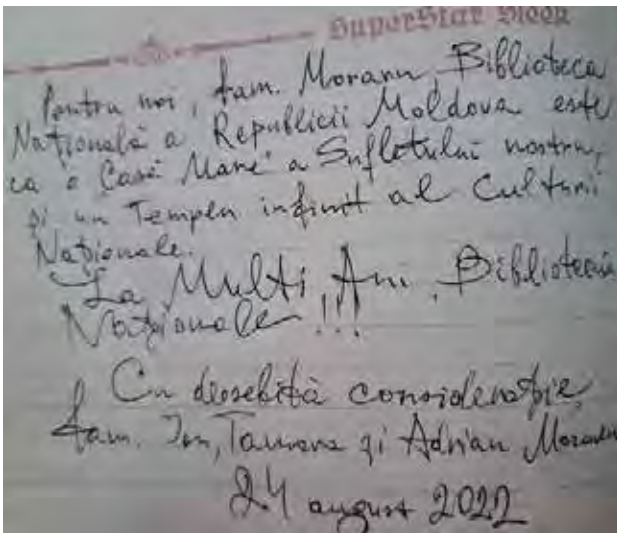 SuperStar
Pentru noi, fam. Moraru, Biblioteca
Națională a Republicii Moldova este
ca o Casă Mare a Sufletului nostru,
și un Templu infinit al Culturii
Naționale.
La Mulți Ani, Bibliotecii
Naționale!!!
Cu deosebită considerație,
fam. Ion, Tamara și Adrian Moraru
24 august 2022